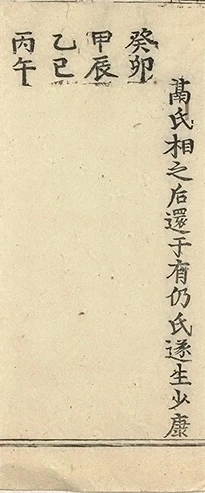 鬲氏相之后還于有仍氏遂生少康
癸卯
甲辰
乙巳
丙午